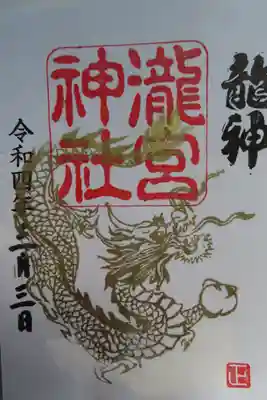 龍神
瀧宮
神社
令和四年二月三日